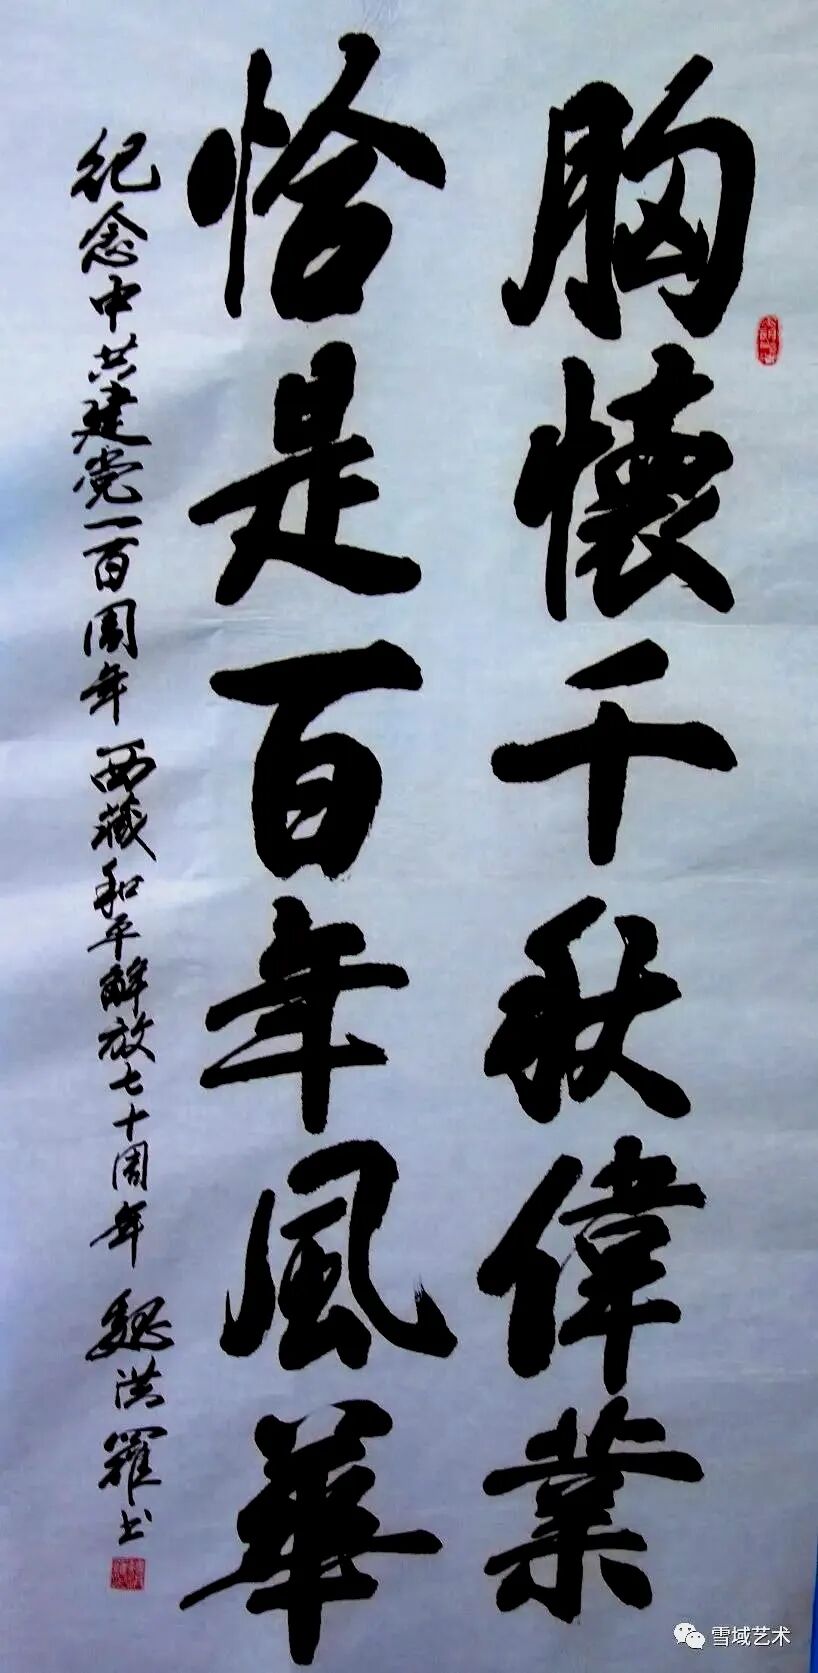 胸懷千秋偉業
恰是百年風華
纪念中共建党一百周年 西藏和平解放七十周年 魏洪羅书
雪域艺术